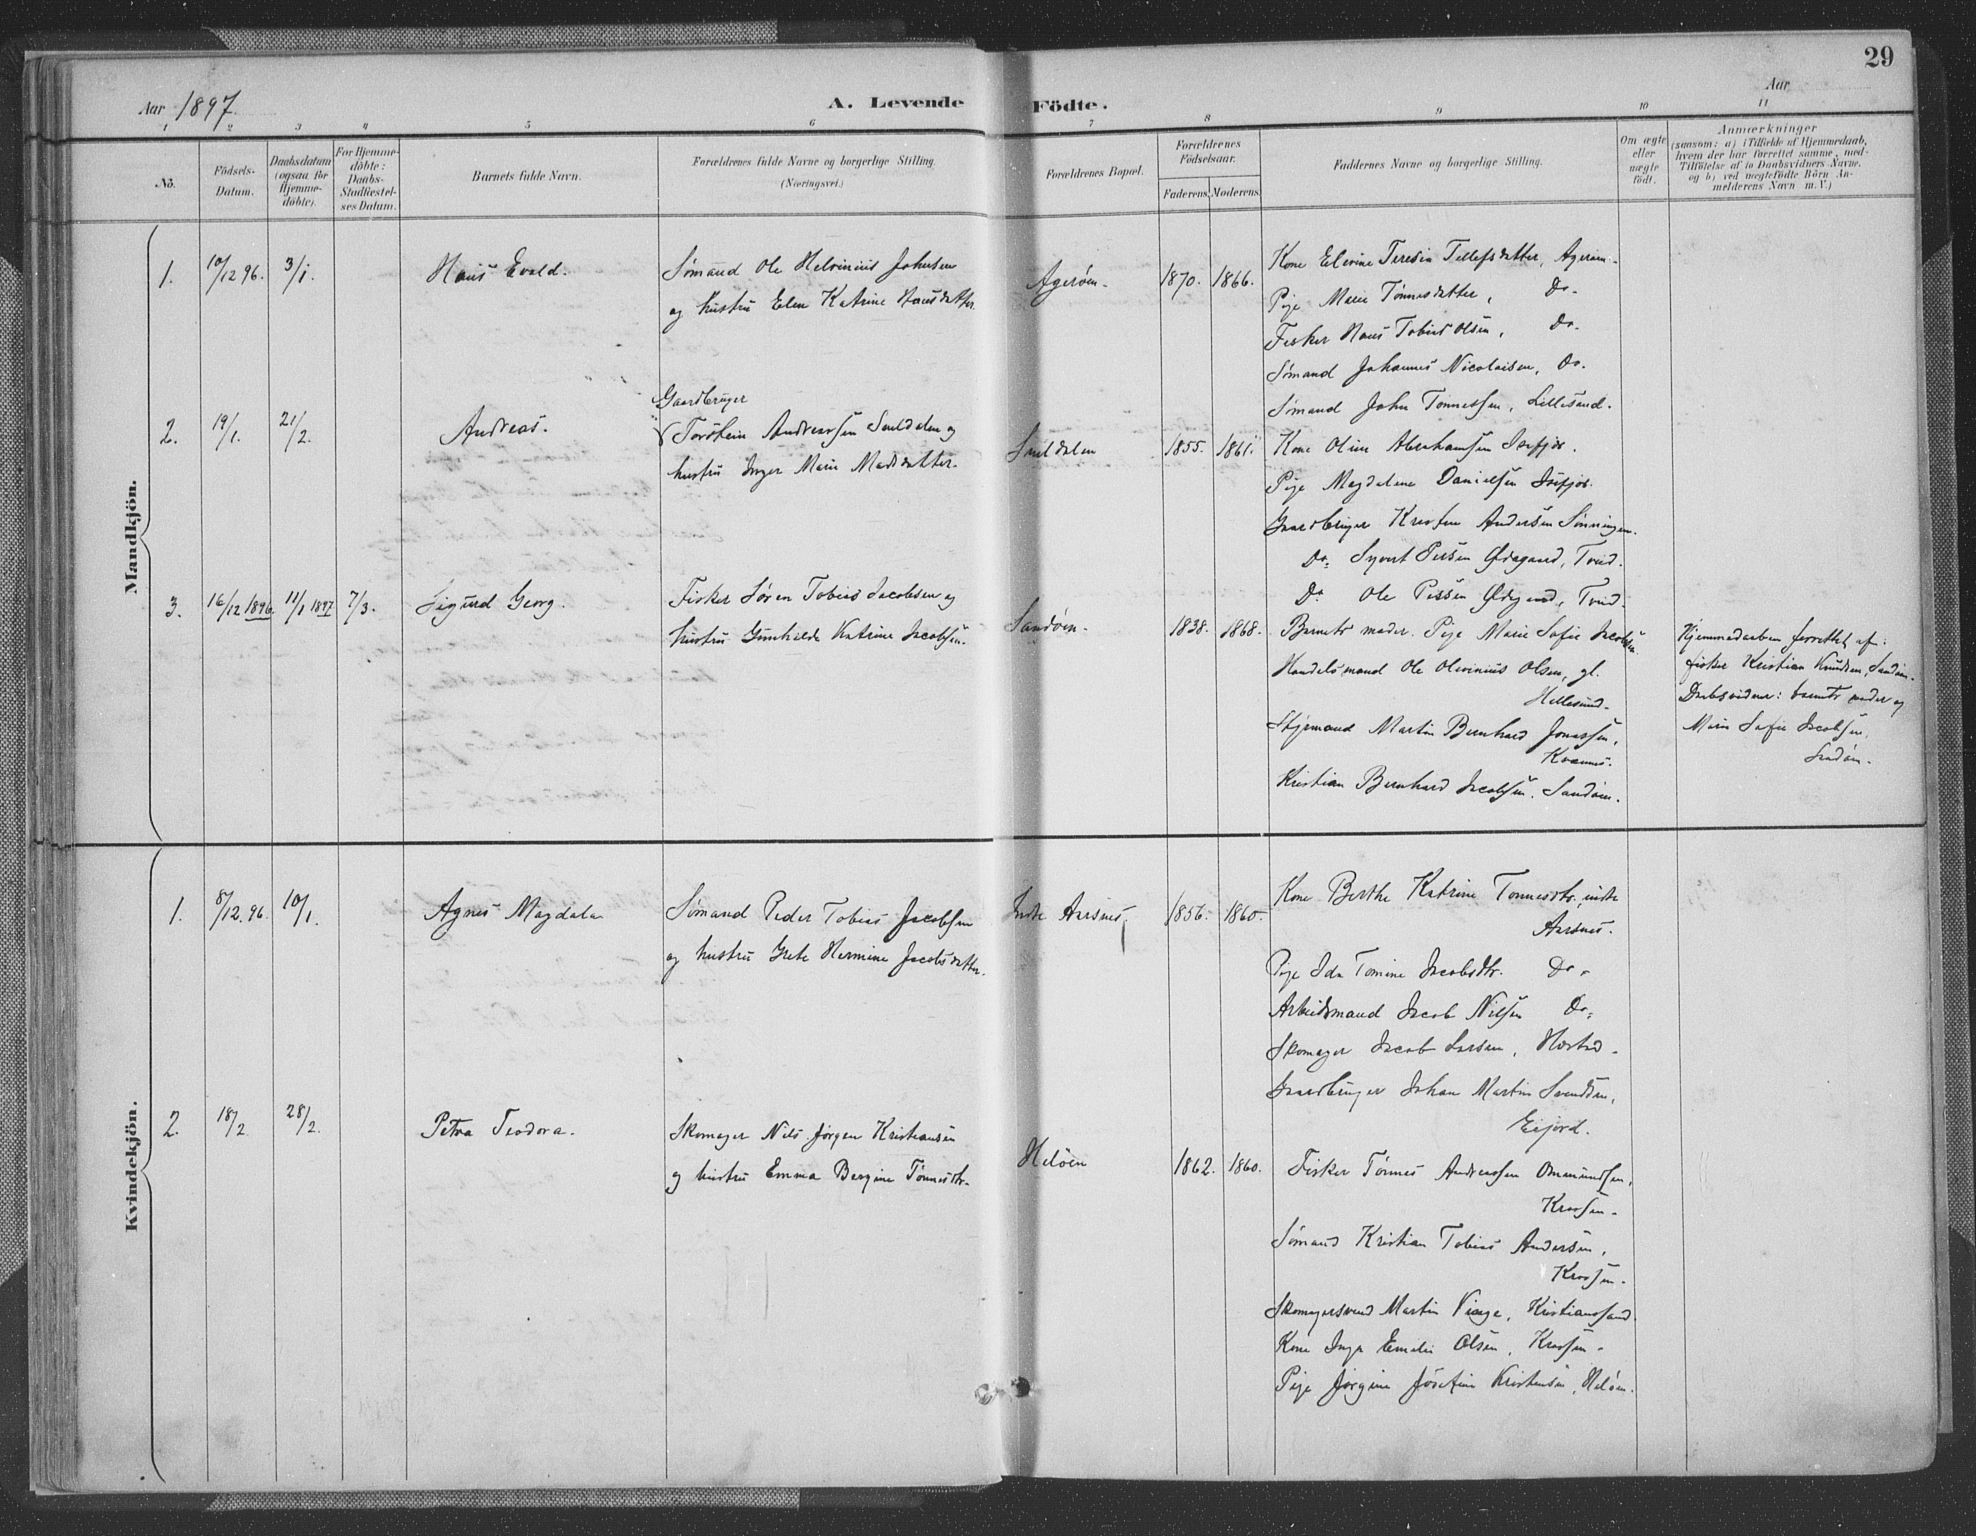 29
Aar 1897
A. Levende Födte.
Aar
1 2 3 4 5 6 7 8 9 10 11
No.
Födsels-
Datum.
Daabsdatum
(ogsaa for
Hjemme-
döbte).
For Hjemme-
döbte:
Daabs-
Stadfæstel-
ses Datum.
Barnets fulde Navn.
Forældrenes fulde Navne og borgerlige Stilling.
(Næringsvei.)
Forældrenes Bopæl.
Forældrenes
Födselsaar.
Faderens. Moderens.
Faddernes Navne og borgerlige Stilling.
Om ægte
eller
uægte
födt.
Anmærkninger
(saasom: a) i Tilfælde af Hjemmedaab,
hvem der har forrettet samme, med
Tilföielse af to Daabsvidners Navne,
og b) ved uægtefödte Börn An-
melderens Navn m. V.)
Mandkjön.
1. 10/12 96. 3/1. Hans Evald.
Sømand Ole Helvinius Johnsen
og hustru Elen Katrine Hansdatter.
Agerøen. 1870. 1866.
Kone Elevine Teresia Tellefsdatter, Agerøen.
Pige Marie Tønnesdatter, Do.
Fisker Hans Tobias Olsen, Do.
Sømand Johannes Nicolaisen, Do.
Sømand John Tønnessen, Lillesand.
2. 19/1. 21/2. Andreas.
Gaardbruger
Torstein Andreassen Suildalen og
hustru Inger Marie Madsdatter.
Suildalen 1855. 1861.
Kone Oline Abrahamsen Isefjær.
Pige Magdalene Danielsen Isefjær.
Gaardbruger Kresten Andersen Sønningen.
Do. Syvert Persen Ødegaard, Tveid.
Do Ole Persen Ødegaard, Tveid.
3. 16/12 1896. 11/1 1897 7/3. Sigurd Georg.
Fisker Søren Tobias Jacobsen og
hustru Gunhilde Katrine Jacobsen.
Sandøen. 1838. 1868.
Barnets moder. Pige Marie Sofie Jacobsen
Handelsmand Ole Olevinius Olsen, gl.
Hellesund.
Styrmand Martin Bernhard Jonassen,
Kvannes.
Kristian Bernhard Jacobsen. Sandøen.
Hjemmedaaben forrettet af:
fisker Kristian Knudsen, Sandøen.
Daabsvidner: barnets moder og
Marie Sofie Jacobsen,
Sandøen.
Kvindekjön.
1. 8/12. 96. 10/1. Agnes Magdala
Sømand Peder Tobias Jacobsen
og hustru Grete Hermine Jacobsdatter.
Indre Aarsnes, 1856. 1860.
Kone Berthe Katrine Tønnesdtr., indre
Aarsnes.
Pige Ida Tomine Jacobsdtr. Do.
Arbeidsmand Jacob Nilsen Do.
Skomager Jacob Larsen, Hæstad.
Gaardbruger Johan Martin Svendsen,
Eijord.
2. 18/2. 28/2. Petra Teodora.
Skomager Nils Jørgen Kristiansen
og hustru Emma Bergine Tønnesdtr.
Heløen 1862. 1860.
Fisker Tønnes Andreassen Ommundsen,
Krossen.
Sømand Kristian Tobias Andersen,
Krossen.
Skomagersvend Martin Viege, Kristianssand.
Kone Inga Emelie Olsen, Krossen.
Pige Jørgine Josefine Kristensen, Heløen.